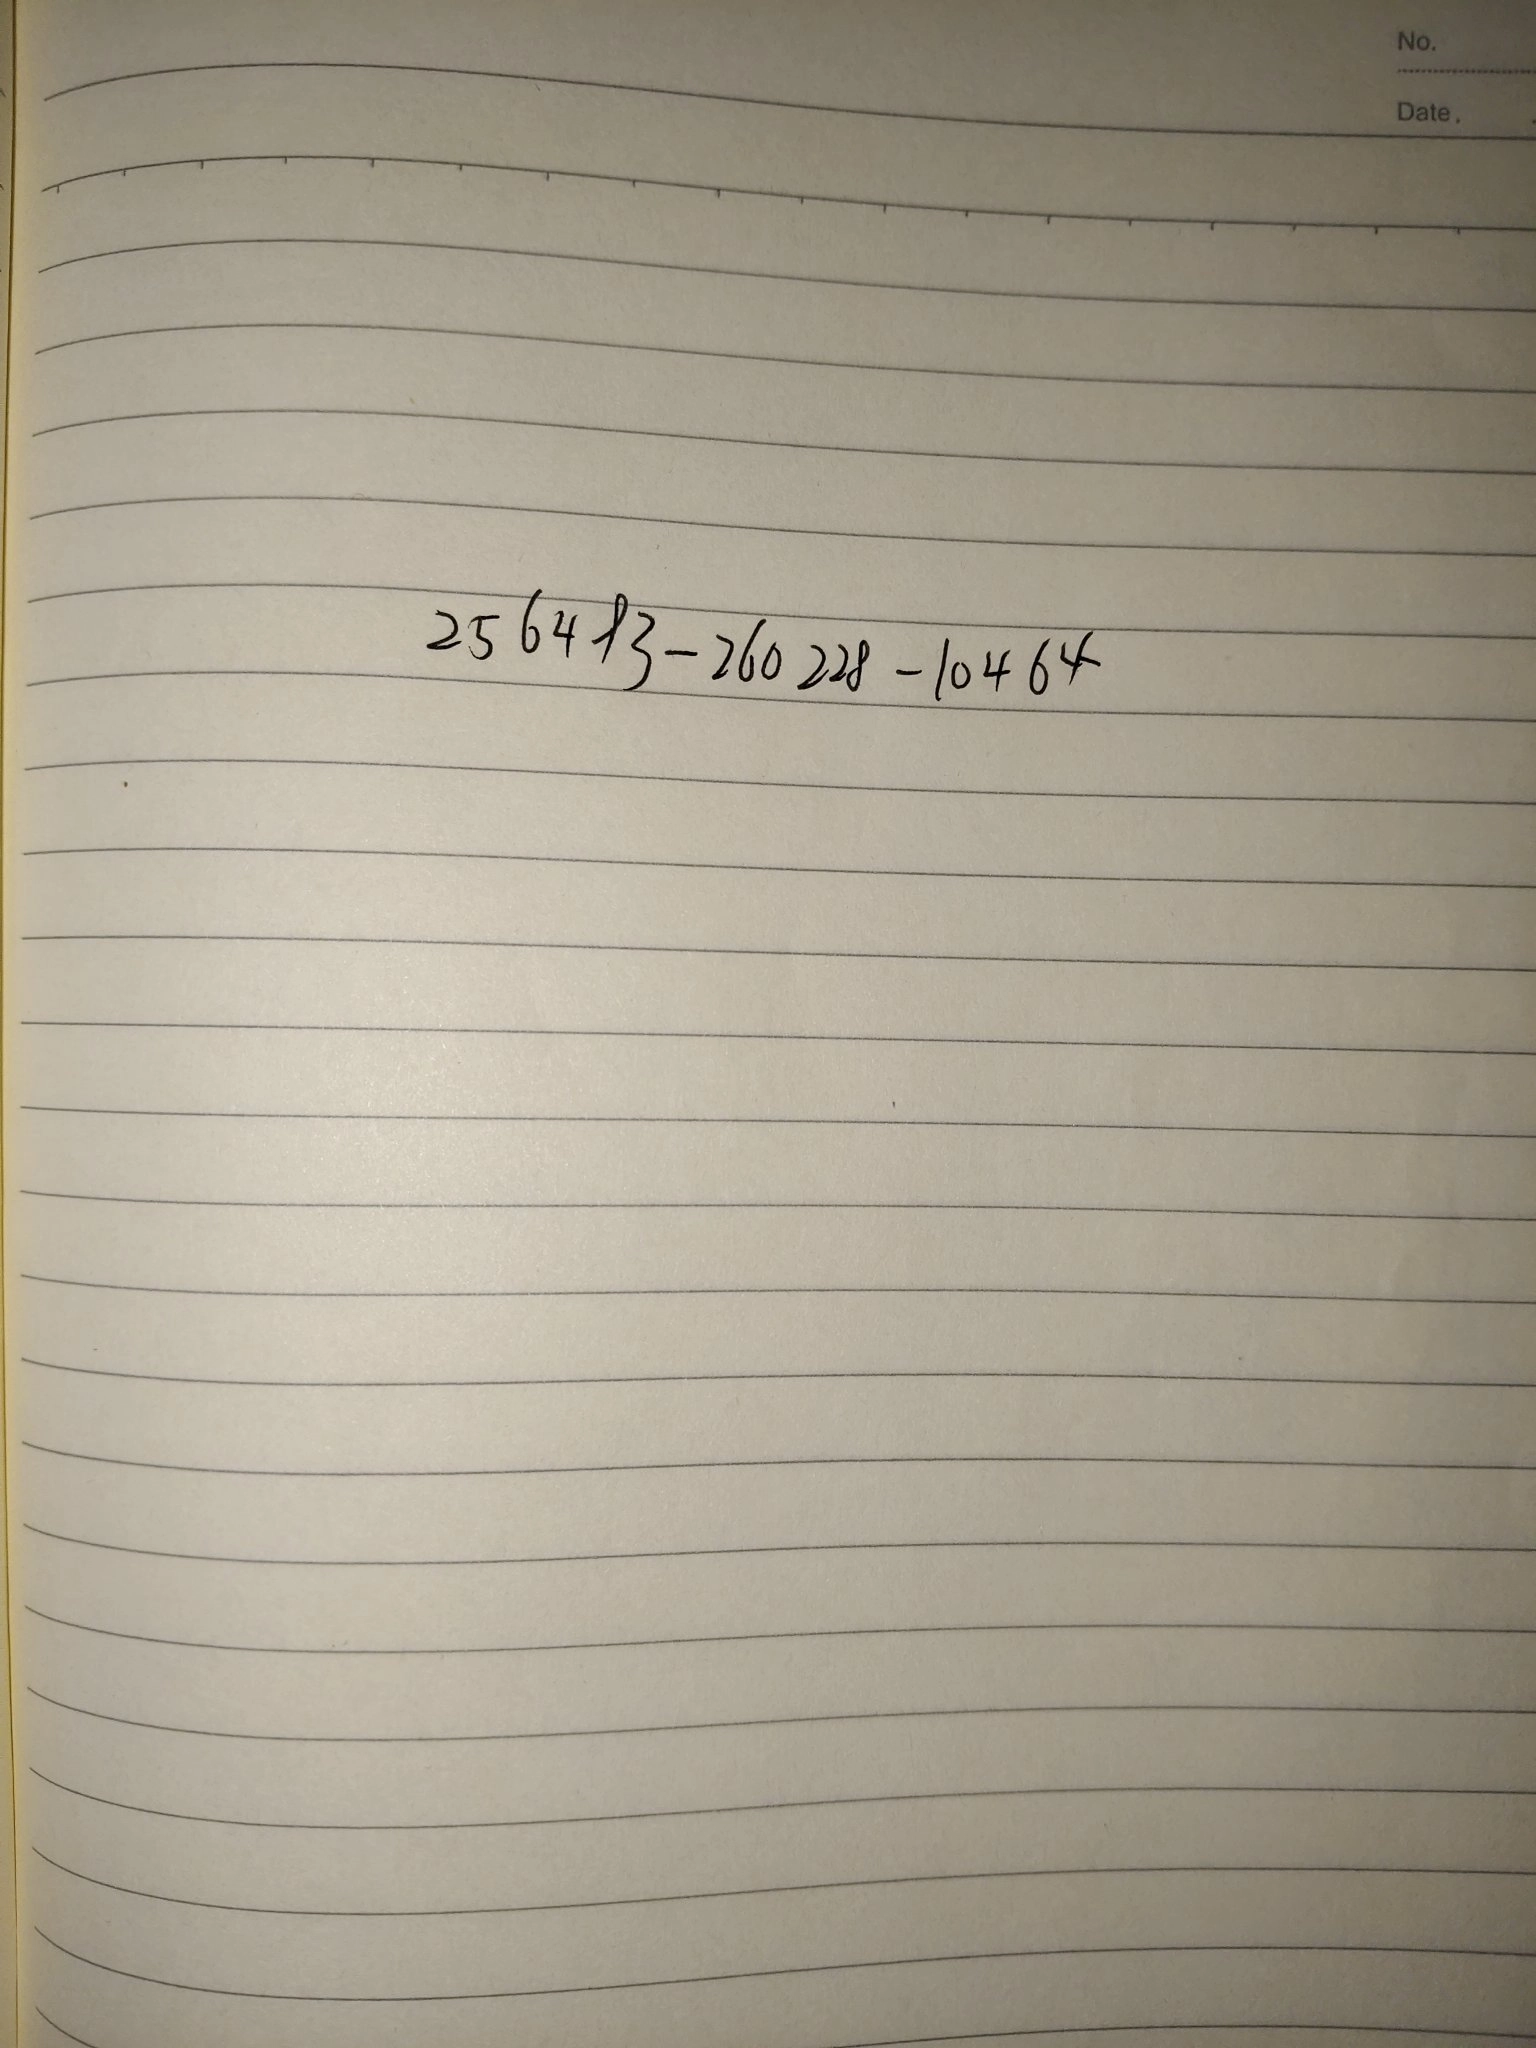 No.
Date.
2564813-260228-10464